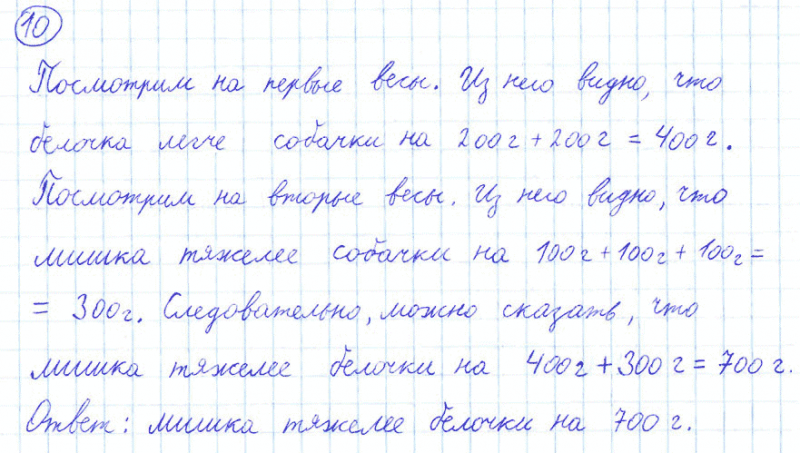 10
Посмотрим на первые весы. Из него видно, что
белочка легче собачки на 200г + 200г = 400г.
Посмотрим на вторые весы. Из него видно, что
мишка тяжелее собачки на 100г + 100г + 100г =
= 300г. Следовательно, можно сказать, что
мишка тяжелее белочки на 400г + 300г = 700г.
Ответ: мишка тяжелее белочки на 700г.